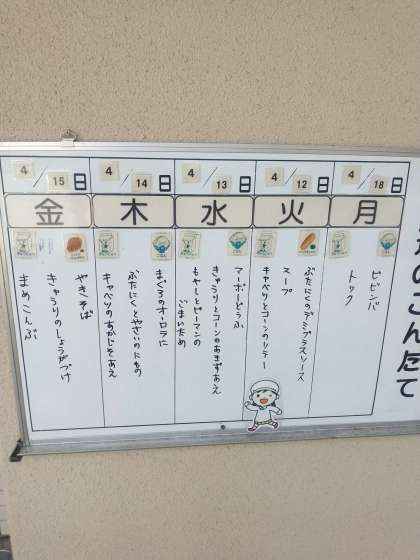 のこんだて
4/18日
月
ビビンバ
トック
4/12日
火
ぶたにくのデミグラスソース
スープ
キャベツとコーンのソテー
4/13日
水
マーボーどうふ
きゅうりとコーンのあまずあえ
もやしとピーマンの
ごまいため
4/14日
木
まぐろのオーロラに
ぶたにくとやさいのにもの
キャベツのあかじそあえ
4/15日
金
やきそば
きゅうりのしょうがづけ
まめこんぶ